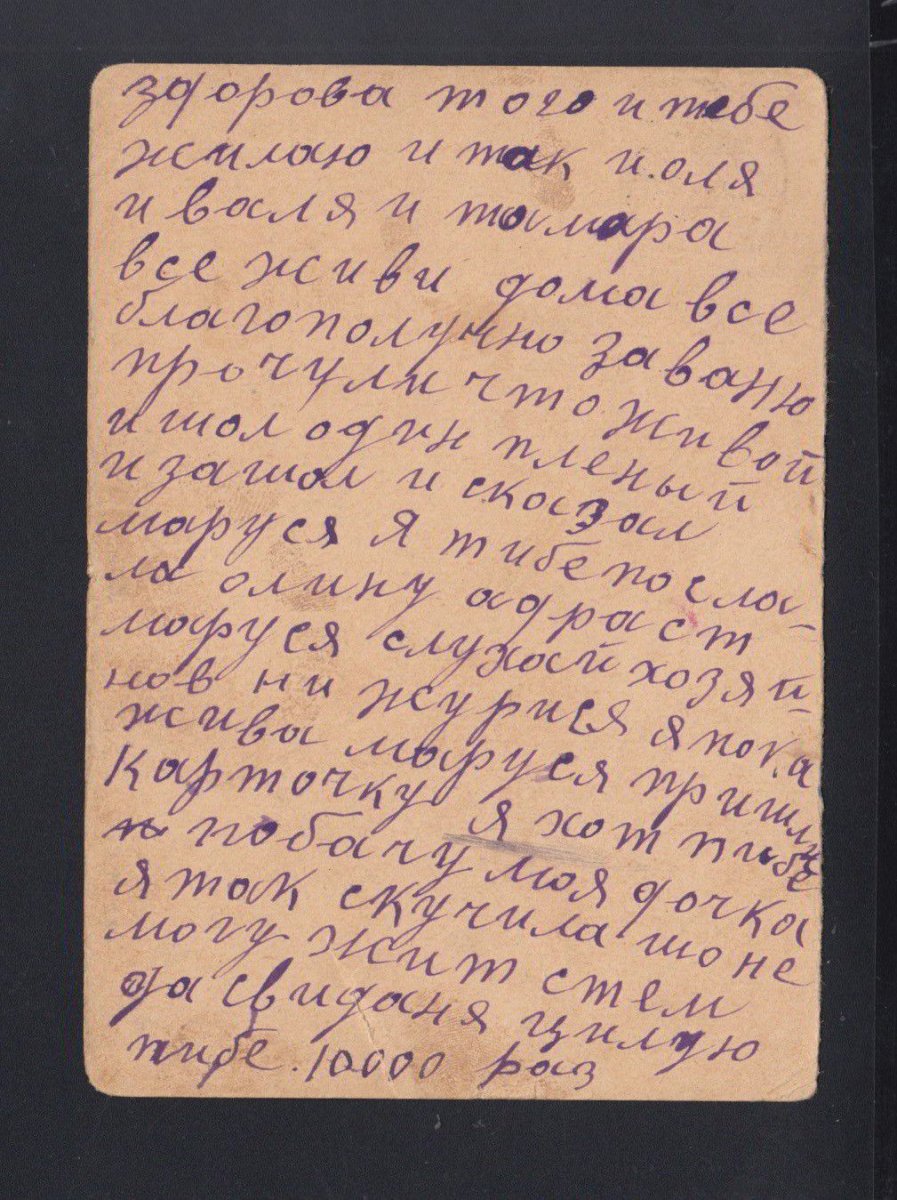 здорова того и тебе
жилаю и так и.оля
и валя и тамара
все живи дома все
благополучно за ваню
прочули что живой
и шол один пленый
и зашол и сказал
маруся я тибе посла-
ла олину адраст
маруся слухай хозяй-
нов ни журися я пока
жива маруся пришли
карточку я хот тибе
побачу моя дочка
я так скучила шо не
могу жит стем
да свиданя цилую
тибе.10000 раз